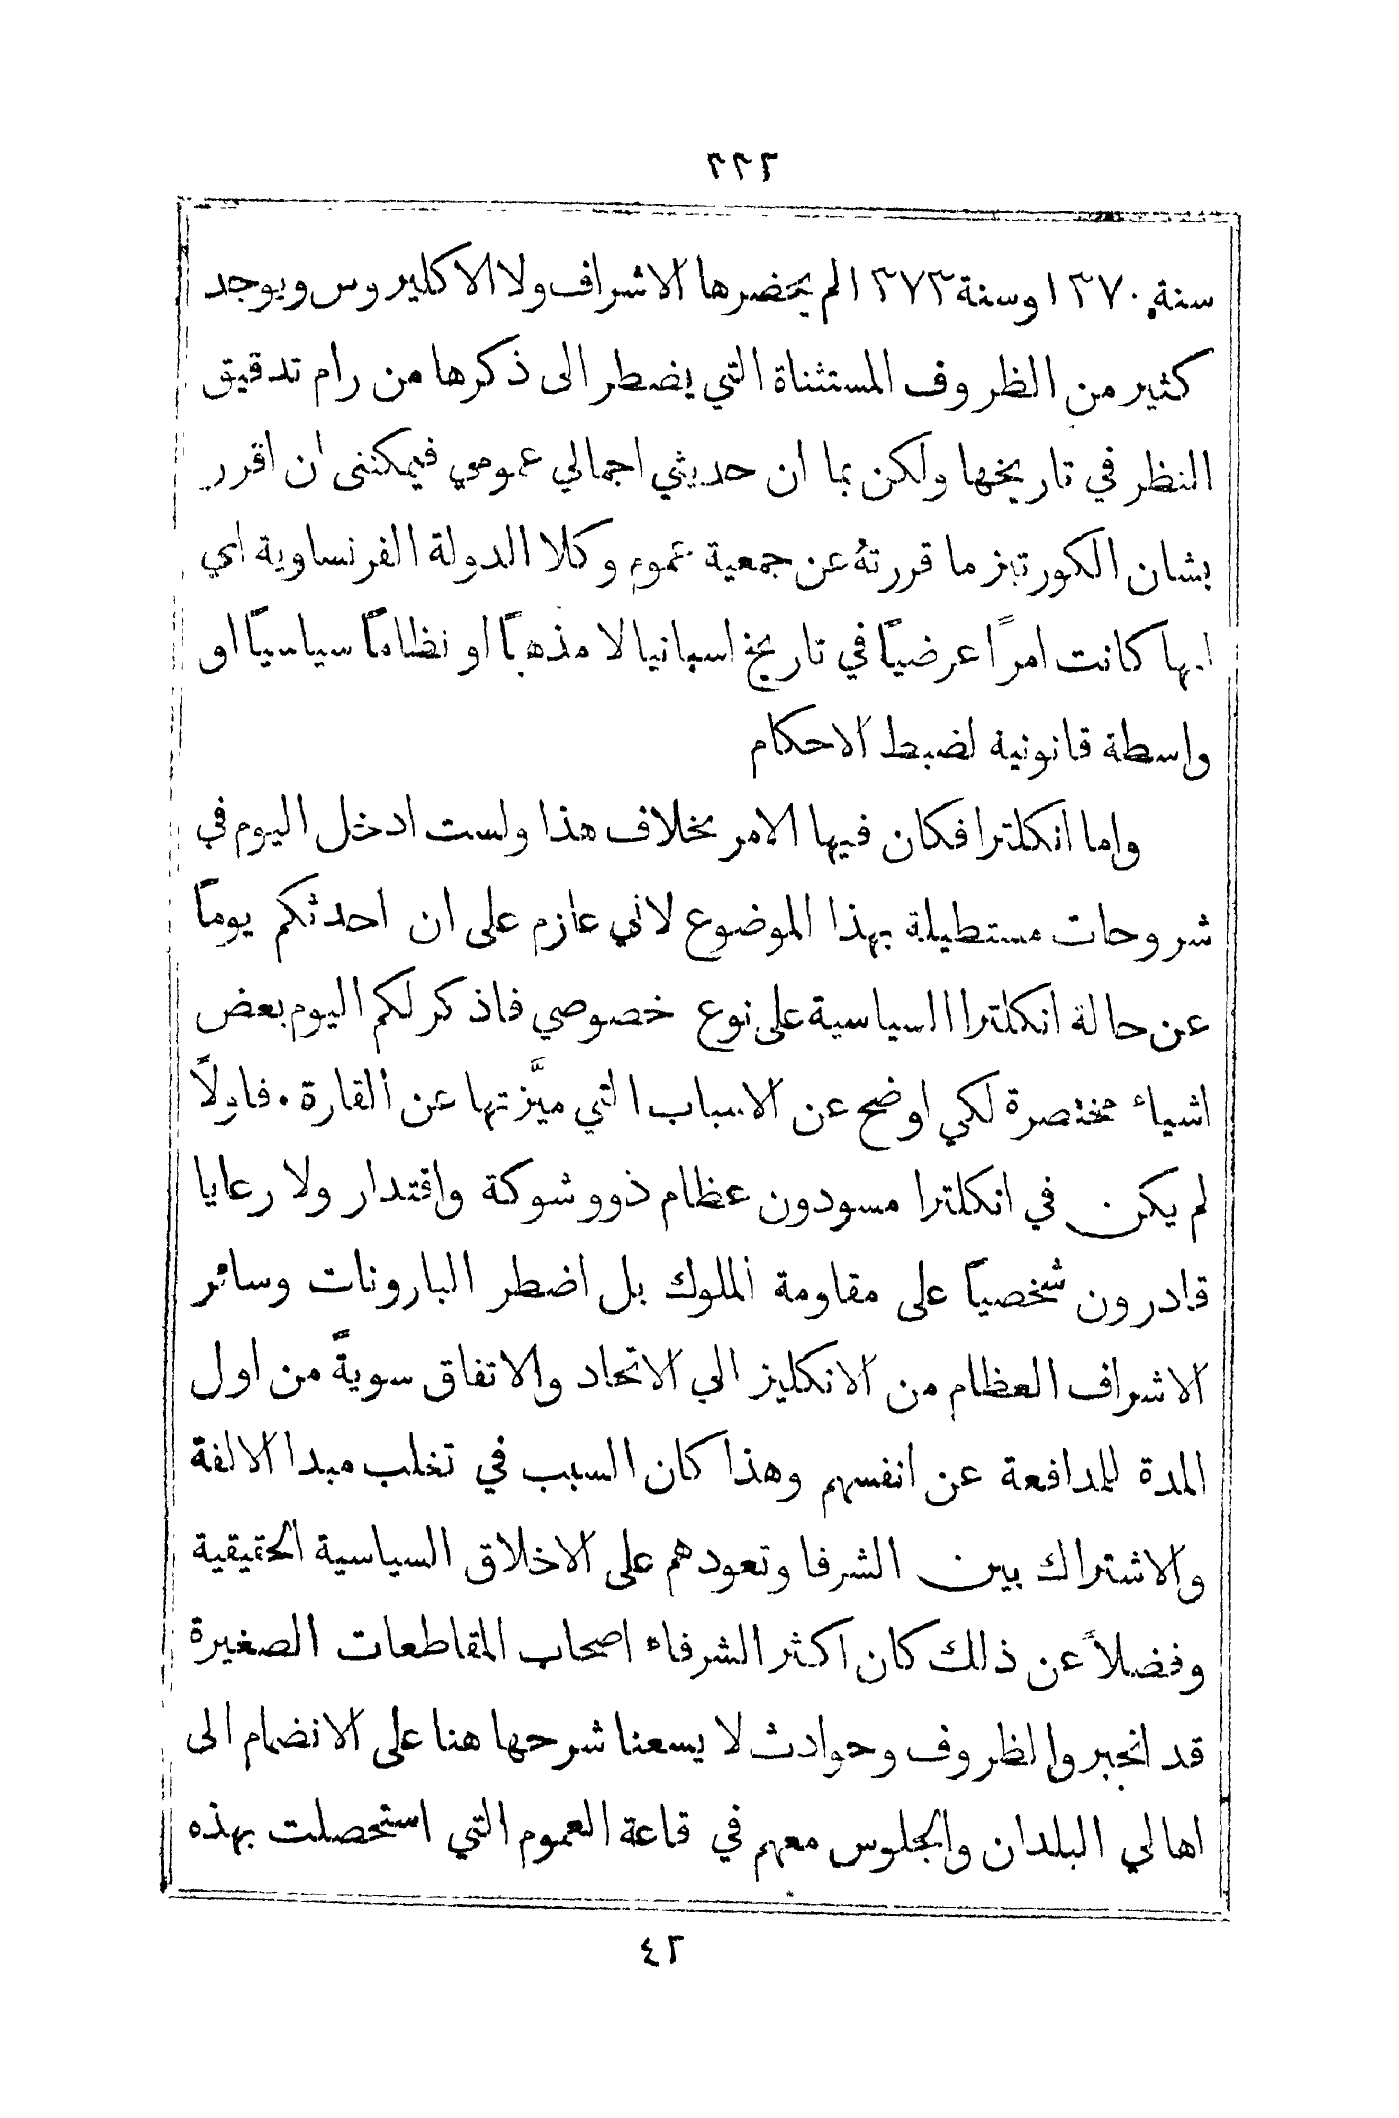 ٣٢٩
سنة ١٣٧٠ وسنة ١٣٧٣ لم يحضرها الاشراف ولا الاكليروس ويوجد
كثير من الظروف المستثناة التي يضطر الى ذكرها من رام تدقيق
النظر في تاريخها ولكن بما ان حديثي اجمالي عمومي فيمكنني ان اقرر
بشان الكورتيز ما قررتهُ عن جمعية عموم وكلا الدولة الفرنساوية اي
انها كانت امرًا عرضيًا في تاريخ اسبانيا لا مذهبًا او نظامًا سياسيًا او
واسطة قانونية لضبط الاحكام
واما انكلترا فكان فيها الامر بخلاف هذا ولست ادخل اليوم في
شروحات مستطيلة بهذا الموضوع لاني عازم على ان احدثكم يومًا
عن حالة انكلترا السياسية على نوع خصوصي فاذكر لكم اليوم بعض
اشياء مختصرة لكي اوضح عن الاسباب التي ميَّزتها عن القارة . فاولاً
لم يكن في انكلترا مسودون عظام ذوو شوكة واقتدار ولا رعايا
قادرون شخصيًا على مقاومة الملوك بل اضطر البارونات وسائر
الاشراف العظام من الانكليز الي الاتحاد والاتفاق سويةً من اول
المدة للمدافعة عن انفسهم وهذا كان السبب في تغلب مبدا الالفة
والاشتراك بين الشرفا وتعودهم على الاخلاق السياسية الحقيقية
وفضلاً عن ذلك كان اكثر الشرفاء اصحاب المقاطعات الصغيرة
قد انجبروا لظروف وحوادث لا يسعنا شرحها هنا على الانضمام الى
اهالي البلدان والجلوس معهم في قاعة العموم التي استحصلت بهذه
٤٢